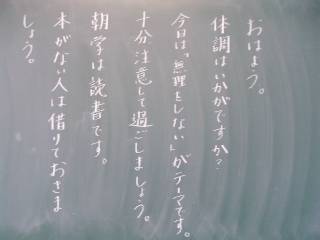 おはよう。
体調はいかがですか?
今日は「無理をしない」がテーマです。
十分注意して過ごしましょう。
朝学は読書です。
本がない人は借りておきま
しょう。